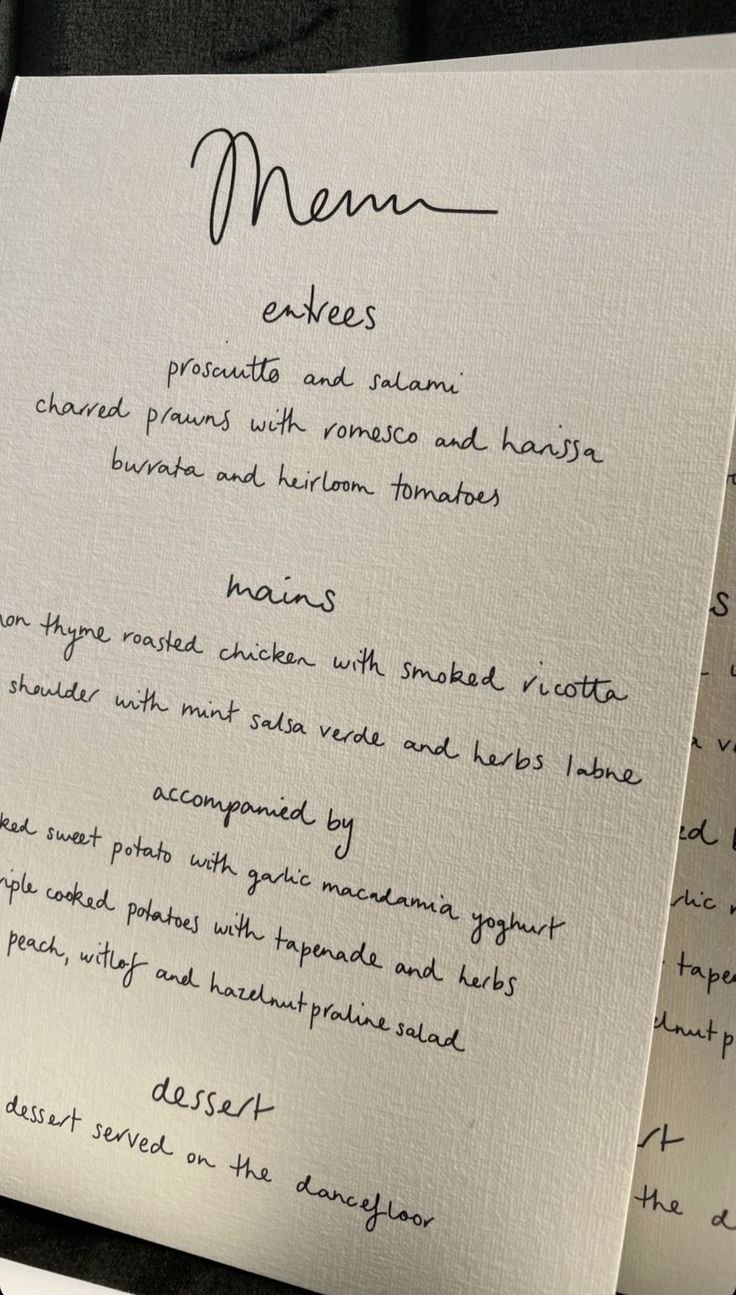 Menu
entrees
prosciutto and salami
charred prawns with romesco and harissa
burrata and heirloom tomatoes
mains
thyme roasted chicken with smoked ricotta
shoulder with mint salsa verde and herbs labne
accompanied by
sweet potato with garlic macadamia yoghurt
cooked potatoes with tapenade and herbs
peach, witlof and hazelnut praline salad
dessert
dessert served on the dancefloor
the